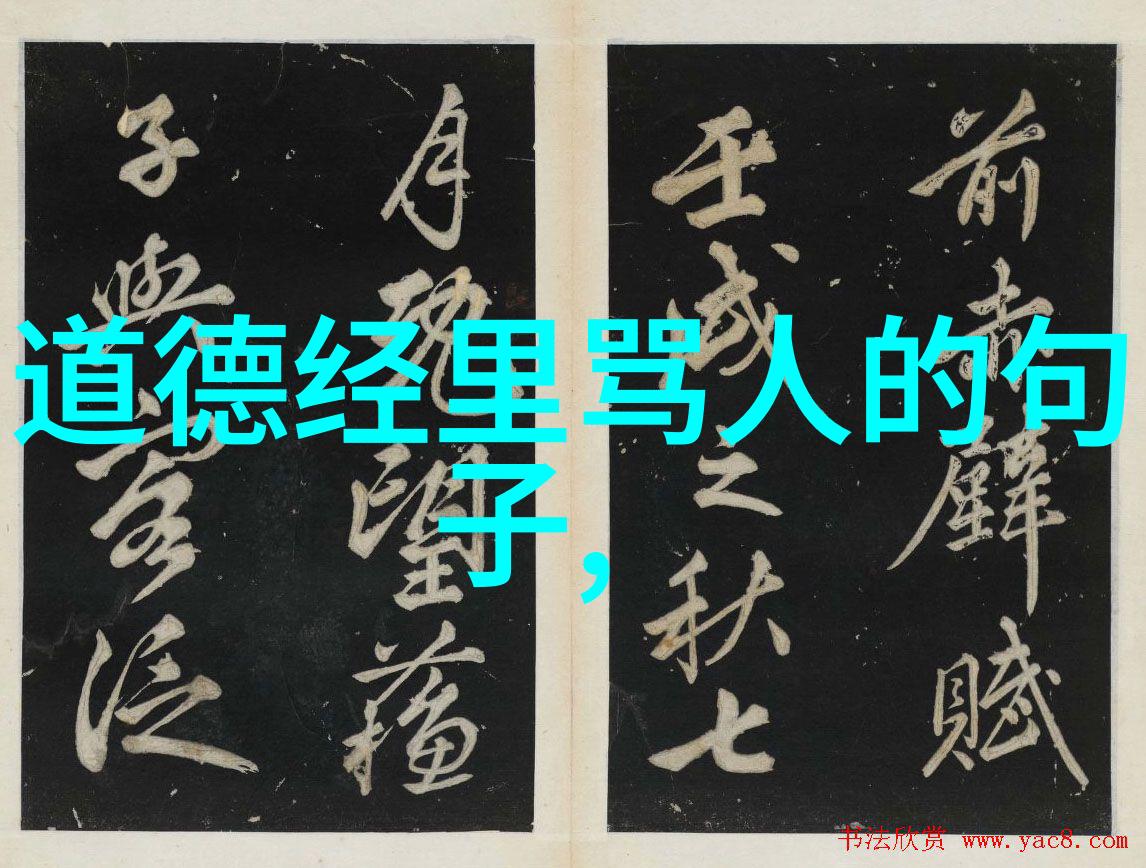 道德经里骂人的句
子，
前赤壁賦
壬戌之秋七
月既望蘓
子與客泛
书法欣赏 www.yac8.com